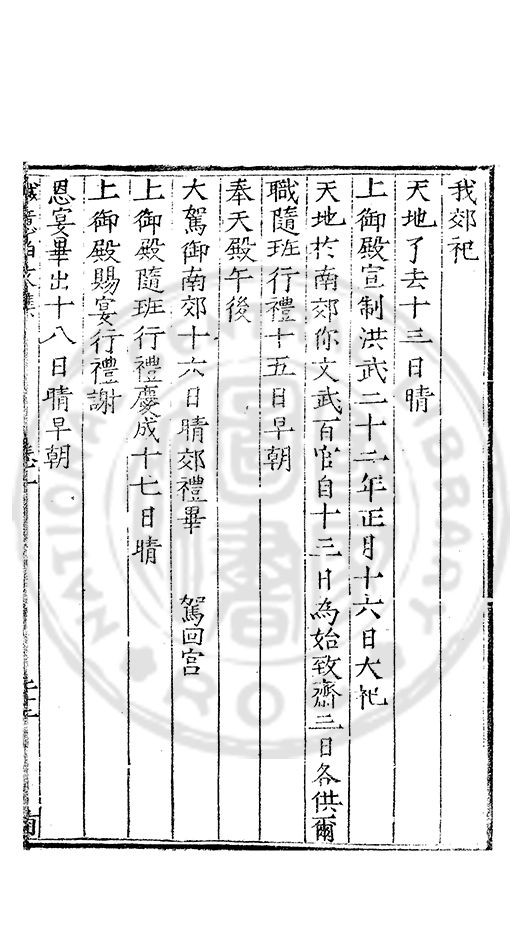 我郊祀
天地了去十三日晴
上御殿宣制洪武二十二年正月十六日大祀
天地於南郊你文武百官自十三日為始致齋三日各供爾
職隨班行禮十五日早朝
奉天殿午後
大駕御南郊十六日晴郊禮畢 駕回宮
上御殿隨班行禮慶成十七日晴
上御殿賜宴行禮謝
恩宴畢出十八日晴早朝